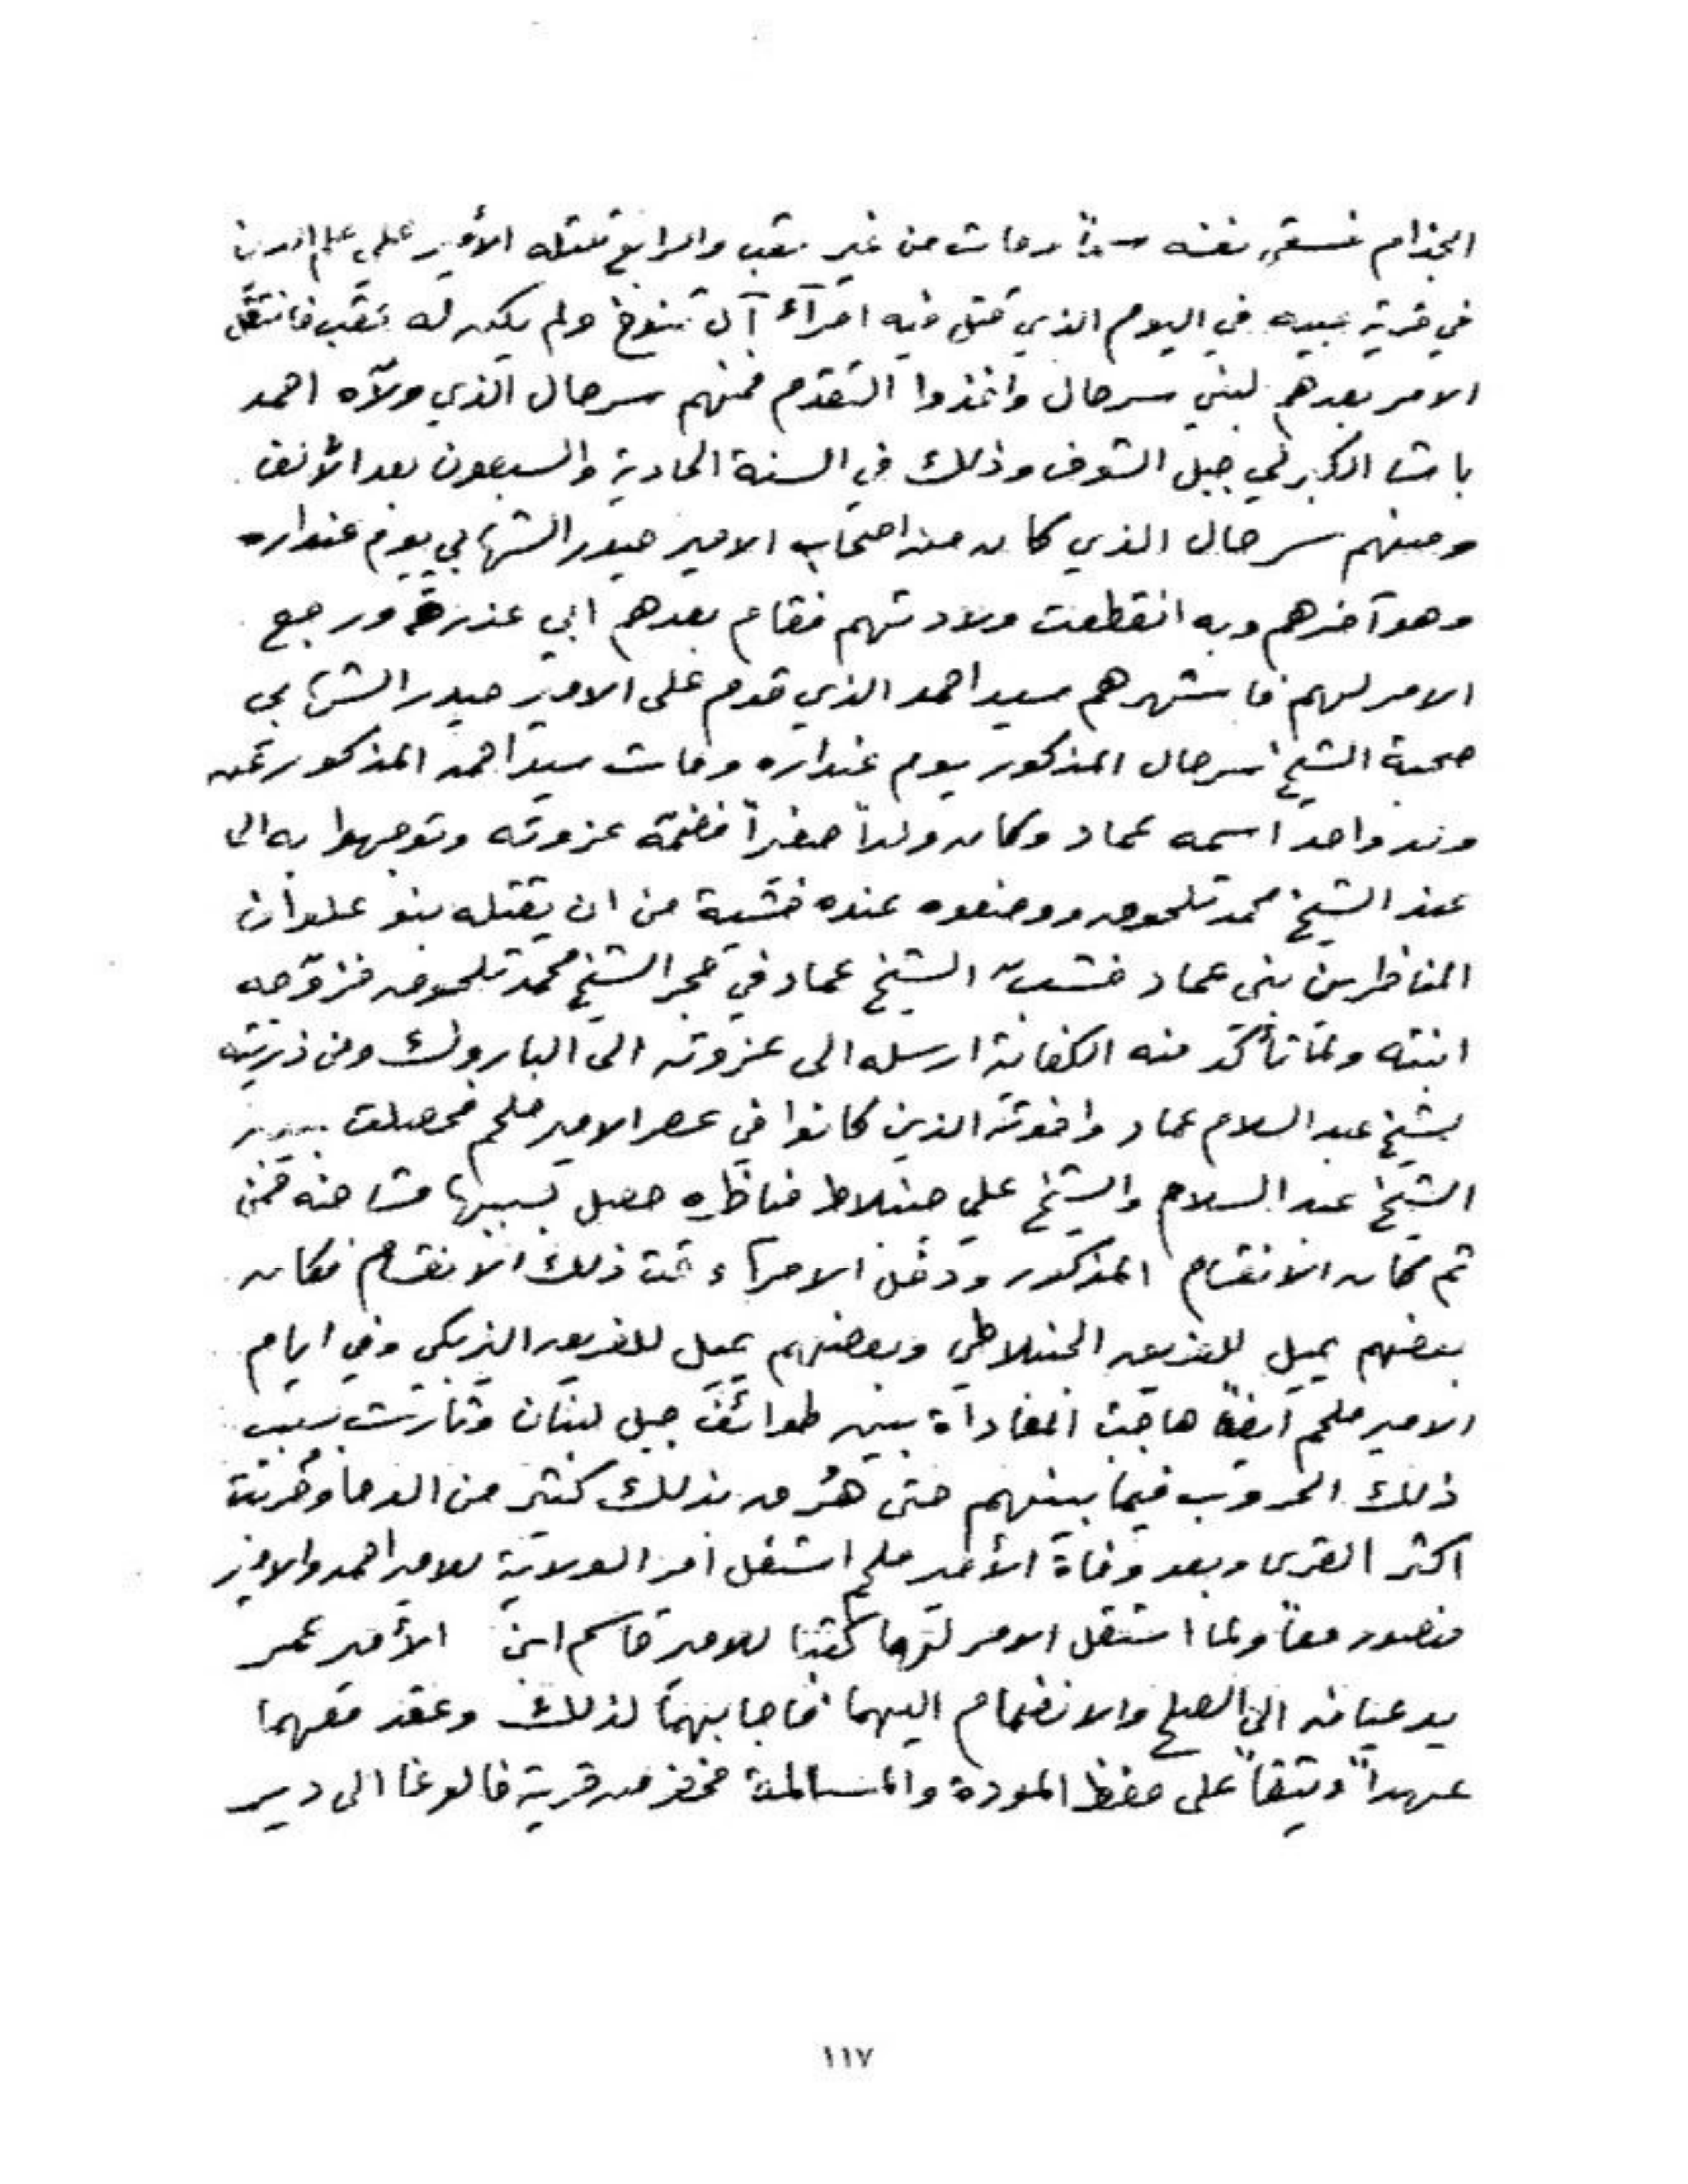 الجذام فسقى نفسه سماً ومات من غير عقب والرابع قتله الأمير علي علم الدين
في قرية عبيه في اليوم الذي قتل فيه امرآء آل تنوخ ولم يكن له عقب فانتقل
الامر بعدهم لبني سرحال واخذوا التقدم فمنهم سرحال الذي ولّاه احمد
باشا الكبرلي جبل الشوف وذلك في السنة الحادية والسبعون بعد الألف
ومنهم سرحال الذي كان من اصحاب الامير حيدر الشهابي يوم عنداره
وهو آخرهم وبه انقطعت ولادتهم فقام بعدهم ابي عذرة ورجع
الامر لهم فاشهرهم سيد احمد الذي قدم على الامير حيدر الشهابي
صحبة الشيخ سرحال المذكور يوم عنداره ومات سيد احمد المذكور عن
ولد واحد اسمه عماد وكان ولداً صغيراً فضمّته عزوته وتوجهوا به الى
عند الشيخ محمد تلحوق ووضعوه عنده خشية من ان يقتله بنو علوان
المناظرين بني عماد فشب الشيخ عماد في حجر الشيخ محمد تلحوق فزوّجه
ابنته ولمّا تأكّد منه الكفاية ارسله الى عزوته الى الباروك ومن ذريته
الشيخ عبد السلام عماد واخوته الذين كانوا في عصر الامير ملحم فحصلت بين
الشيخ عبد السلام والشيخ علي جنبلاط مناظره حصل بسببها مشاحنه فمن
ثم كان الانقسام المذكور ودخل الامراء تحت ذلك الانقسام فكان
بعضهم يميل للفريق الجنبلاطي وبعضهم يميل للفريق اليزبكي وفي ايام
الامير ملحم ايضاً هاجت المعاداة بين طوائف جبل لبنان وثارت بسبب
ذلك الحروب فيما بينهم حتى هُرق بذلك كثير من الدما وخربت
اكثر القرى وبعد وفاة الأمير ملحم استقل امر الولاية للامير احمد والامير
منصور معاً ولما استقل الامر لهما كتبا للامير قاسم ابن الأمير عمر
يدعيانه الى الصلح والانضمام اليهما فاجابهما لذلك وعقد معهما
عهداً وثيقاً على حفظ المودة والمسالمة فحضر من قرية فالوغا الى دير
١١٧